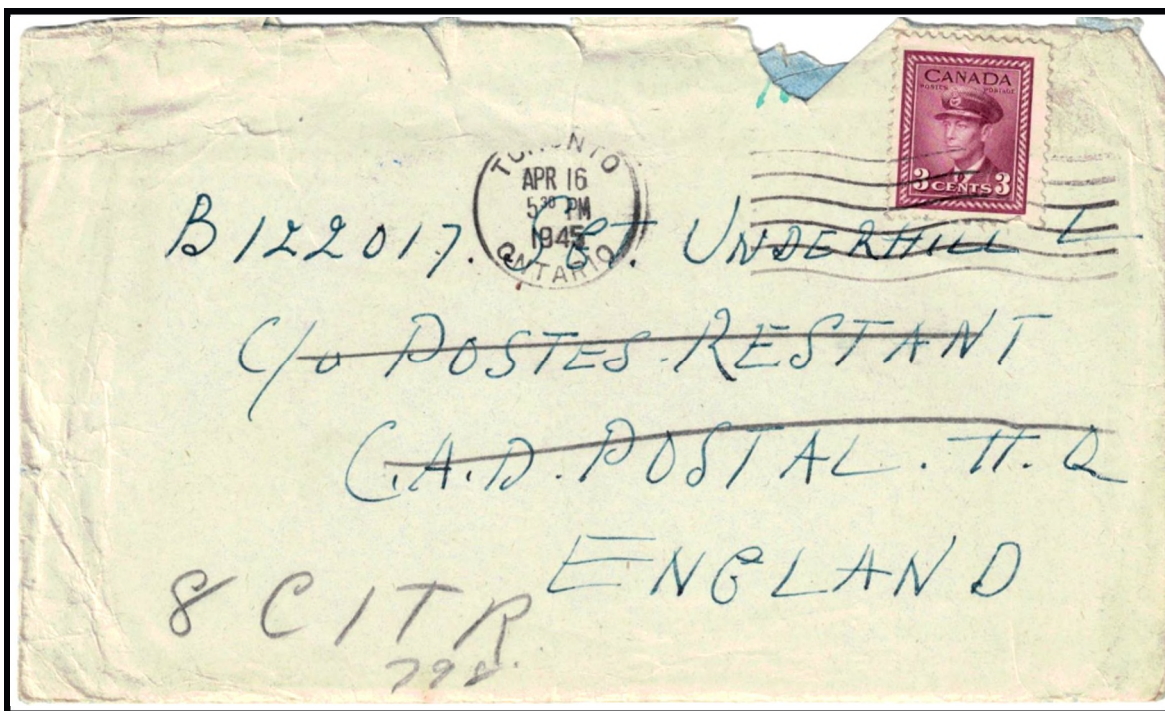 CANADA
POSTES POSTAGE
3 CENTS 3
TORONTO
APR 16
5 30 PM
1945
ONTARIO
B122017. SGT. UNDERHILL L
C/o POSTES-RESTANT
C.A.D. POSTAL. H.Q
ENGLAND
8 CITR